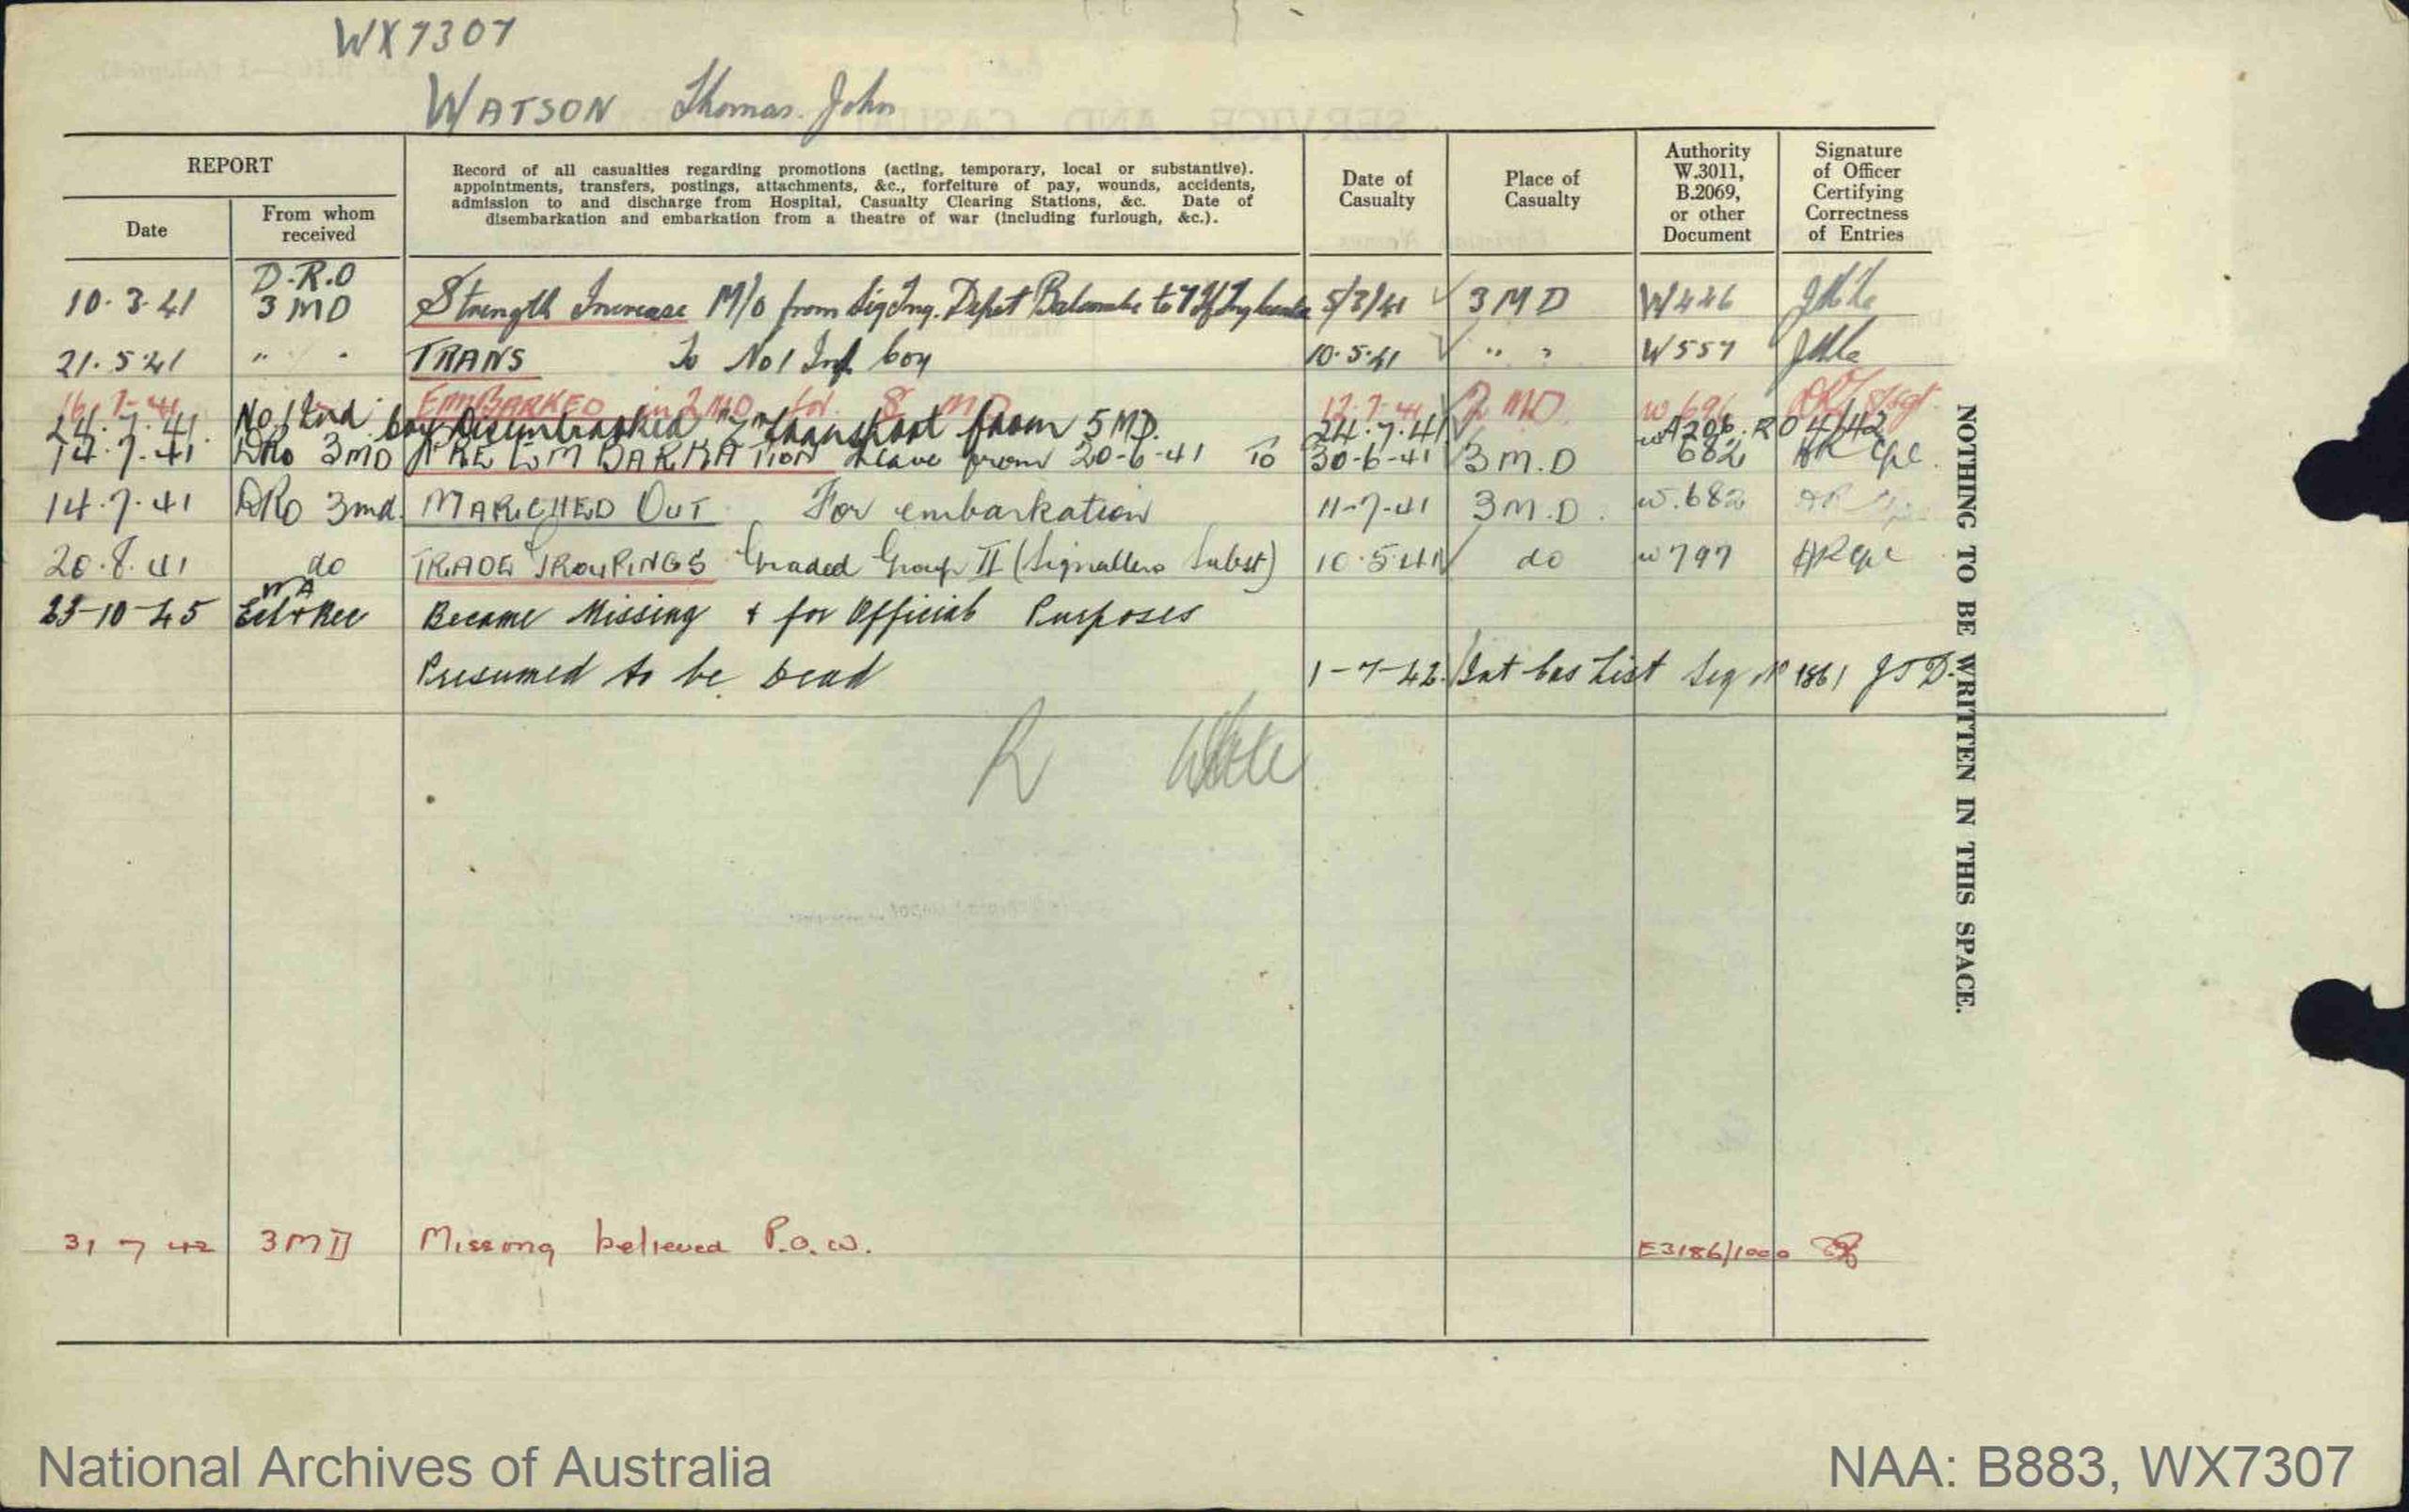 WX7307
WATSON Thomas. John
REPORT
Date
From whom received
Record of all casualties regarding promotions (acting, temporary, local or substantive).
appointments, transfers, postings, attachments, &c., forfeiture of pay, wounds, accidents,
admission to and discharge from Hospital, Casualty Clearing Stations, &c. Date of
disembarkation and embarkation from a theatre of war (including furlough, &c.).
Date of Casualty
Place of Casualty
Authority W.3011, B.2069, or other Document
Signature of Officer Certifying Correctness of Entries
D.R.O
10.3.41 3 MD Strength Increase M/O from Sig Trg. Depot to 5/3/41 3 MD W426
21.5.41 " " TRANS to No 1 Ind Coy 10.5.41 " " W557
16.7.41 EMBARKED in 2 MD for 8 MD 12.7.41 2 MD W696 Sgt
24.7.41 No 1 Ind Coy Disembarked transport from 5 MD. 24.7.41 A206. RO 4/42
14.7.41 DRO 3MD PRE EMBARKATION Leave from 20-6-41 To 30-6-41 3 M.D w 682 Cpl.
14.7.41 DRO 3md. MARCHED OUT For embarkation 11-7-41 3 M.D. w.682
20.8.41 do TRADE GROUPINGS Graded Group II (Signallers Subst) 10.5.41 do w797 Cpl
WA
23-10-45 Ech & Rec Became Missing & for Official Purposes
Presumed to be Dead 1-7-42 Cas List Seq No 1861 JSD.
31 7 42 3 MD Missing believed P.O.W. E3186/1000
NOTHING TO BE WRITTEN IN THIS SPACE.
National Archives of Australia
NAA: B883, WX7307